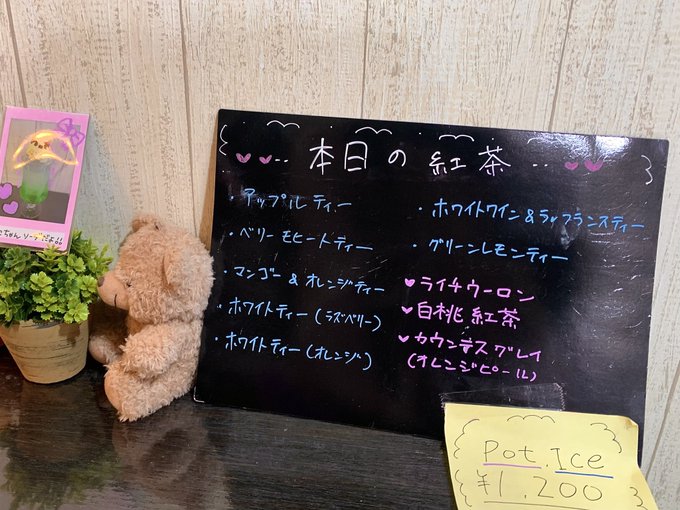 本日の紅茶
・アップルティー
・ベリーモヒートティー
・マンゴー&オレンジティー
・ホワイトティー(ラズベリー)
・ホワイトティー(オレンジ)
・ホワイトワイン&ラ・フランスティー
・グリーンレモンティー
♥ライチウーロン
♥白桃紅茶
♥カウンテスグレイ
(オレンジピール)
Pot.Ice
¥1,200
ちゃんソーダだよ